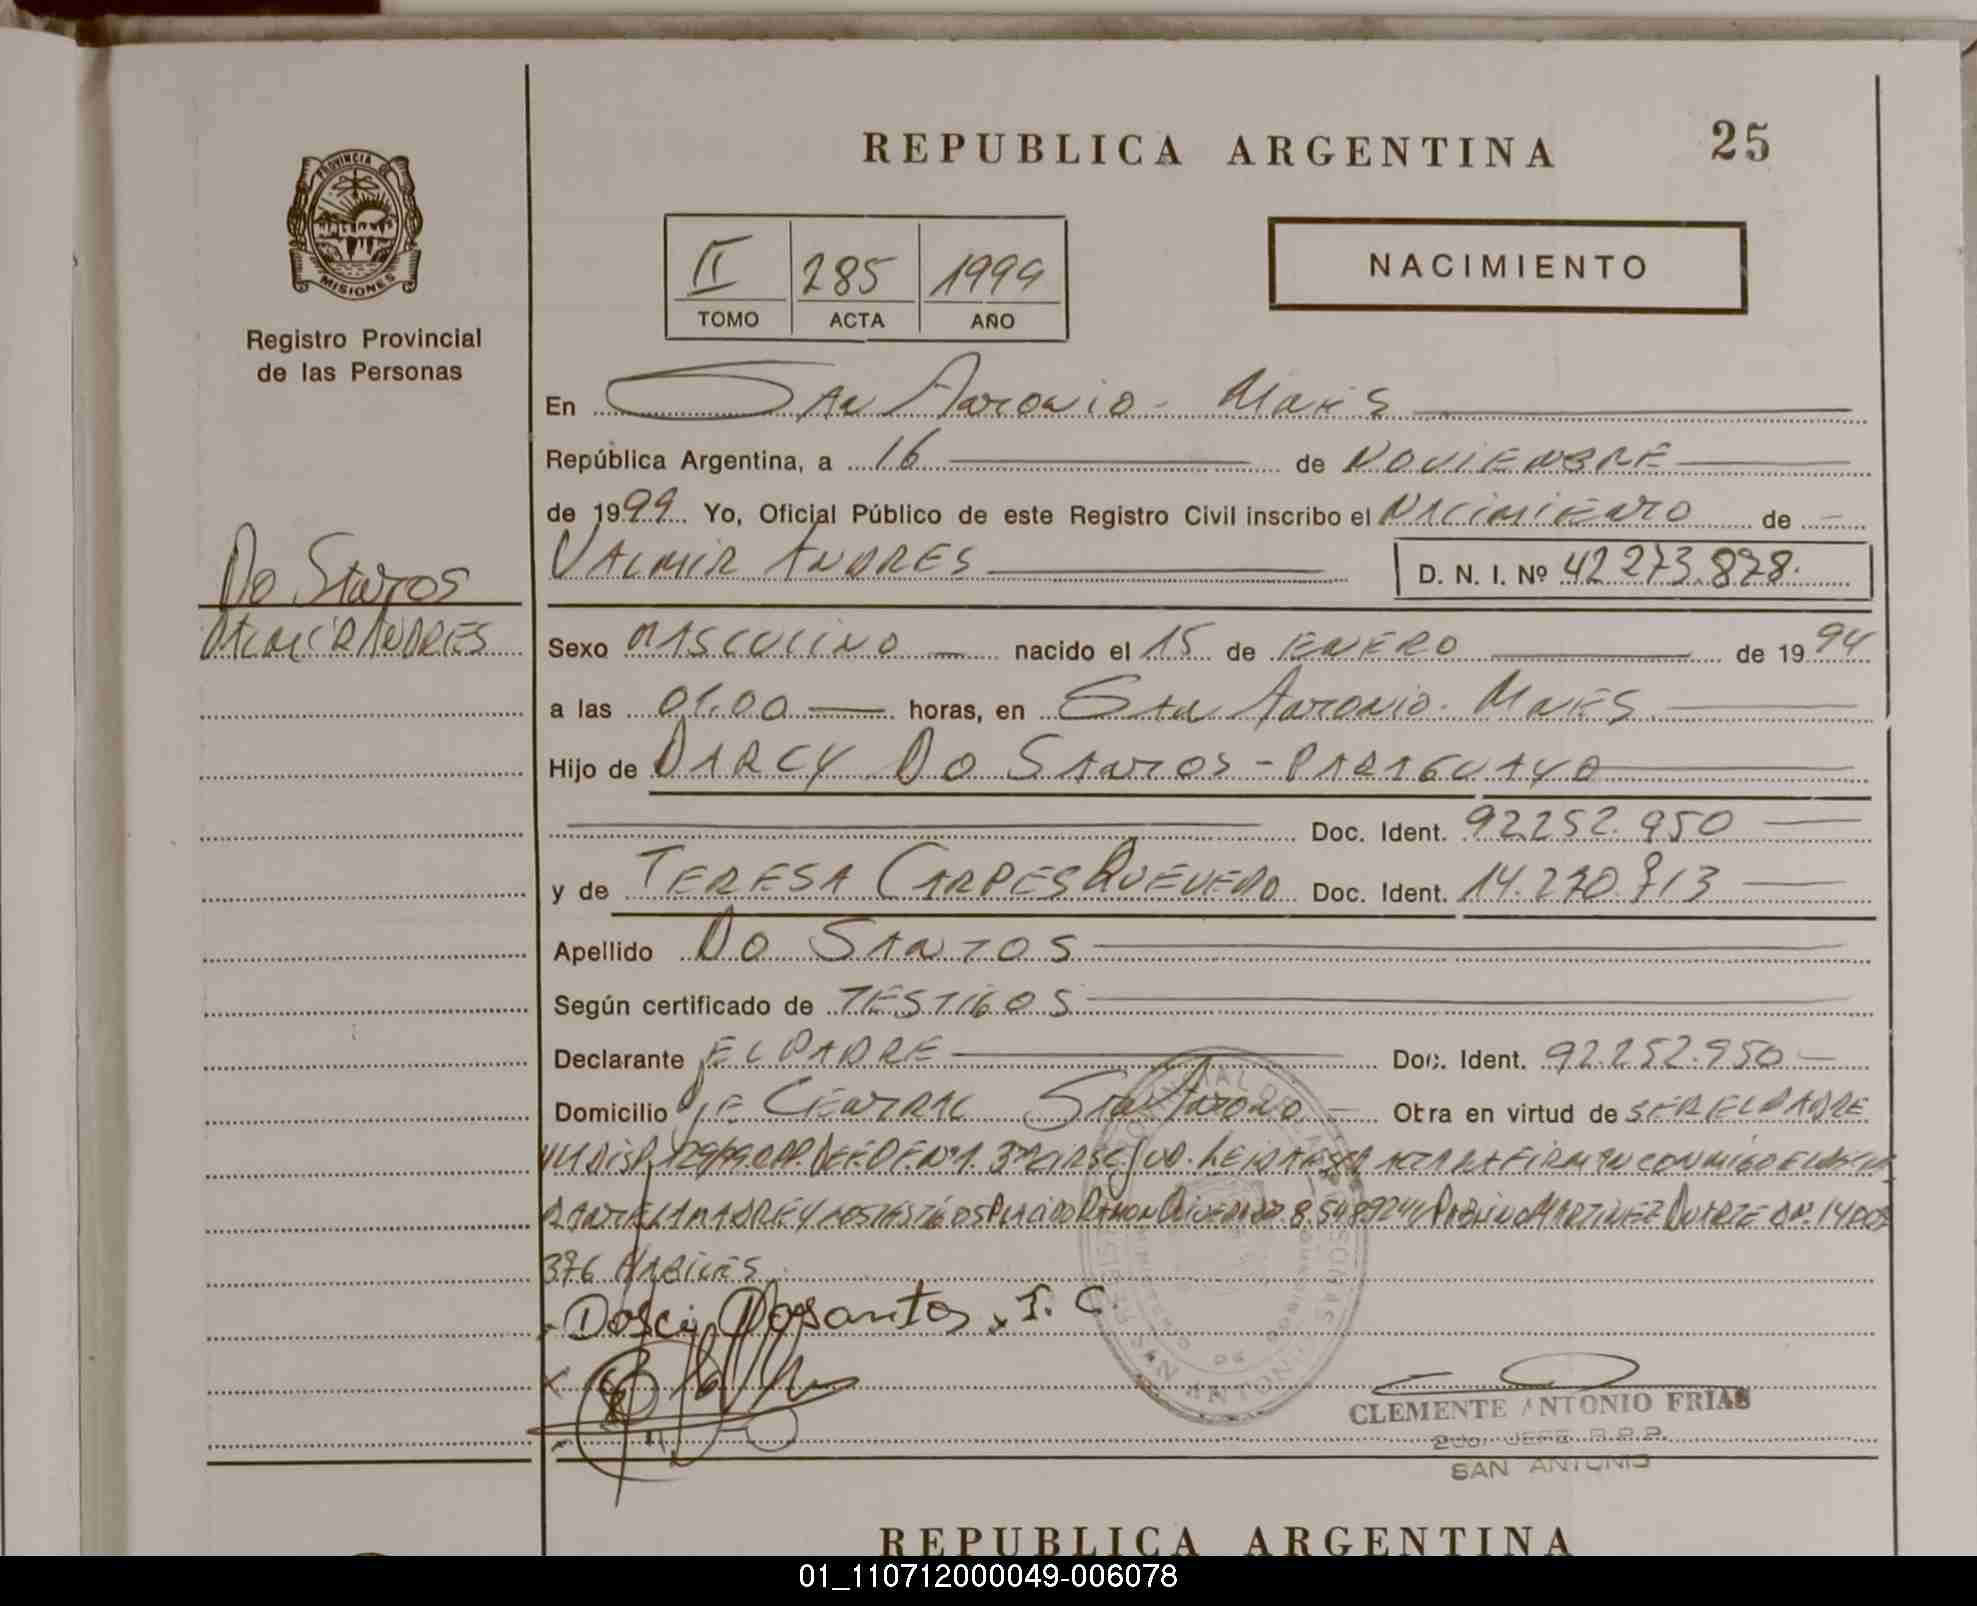 REPUBLICA ARGENTINA 25
PROVINCIA DE MISIONES
Registro Provincial
de las Personas
II 285 1999
TOMO ACTA AÑO
NACIMIENTO
En San Antonio - Mnes
República Argentina, a 16 de NOVIEMBRE
de 1999. Yo, Oficial Público de este Registro Civil inscribo el NACIMIENTO de
VALMIR ANDRES D. N. I. Nº 42 273.878.
Do Santos
VALMIR ANDRES
Sexo MASCULINO nacido el 15 de ENERO de 1994
a las 01.00 horas, en San Antonio. Mnes
Hijo de DARCY DO SANTOS - PARAGUAYO
Doc. Ident. 92.252.950
y de TERESA CARPES QUEVEDO Doc. Ident. 14.270.713
Apellido DO SANTOS
Según certificado de TESTIGOS
Declarante EL PADRE Doc. Ident. 92.252.950
Domicilio Pje CENTRAL San Antonio Otra en virtud de SER EL PADRE
DISP. 129/99 DEF. OF. Nº1. 3ª CIRSC. JUD. LEIDA ACTA LA FIRMAN CONMIGO EL
LA MADRE Y LOS TESTIGOS PLACIDO RAMON MARTINEZ DUARTE
376 HABILES
Dosantos T. C.
CLEMENTE ANTONIO FRIAS
2do. JEFE R.P.P.
SAN ANTONIO
REPUBLICA ARGENTINA
01_110712000049-006078